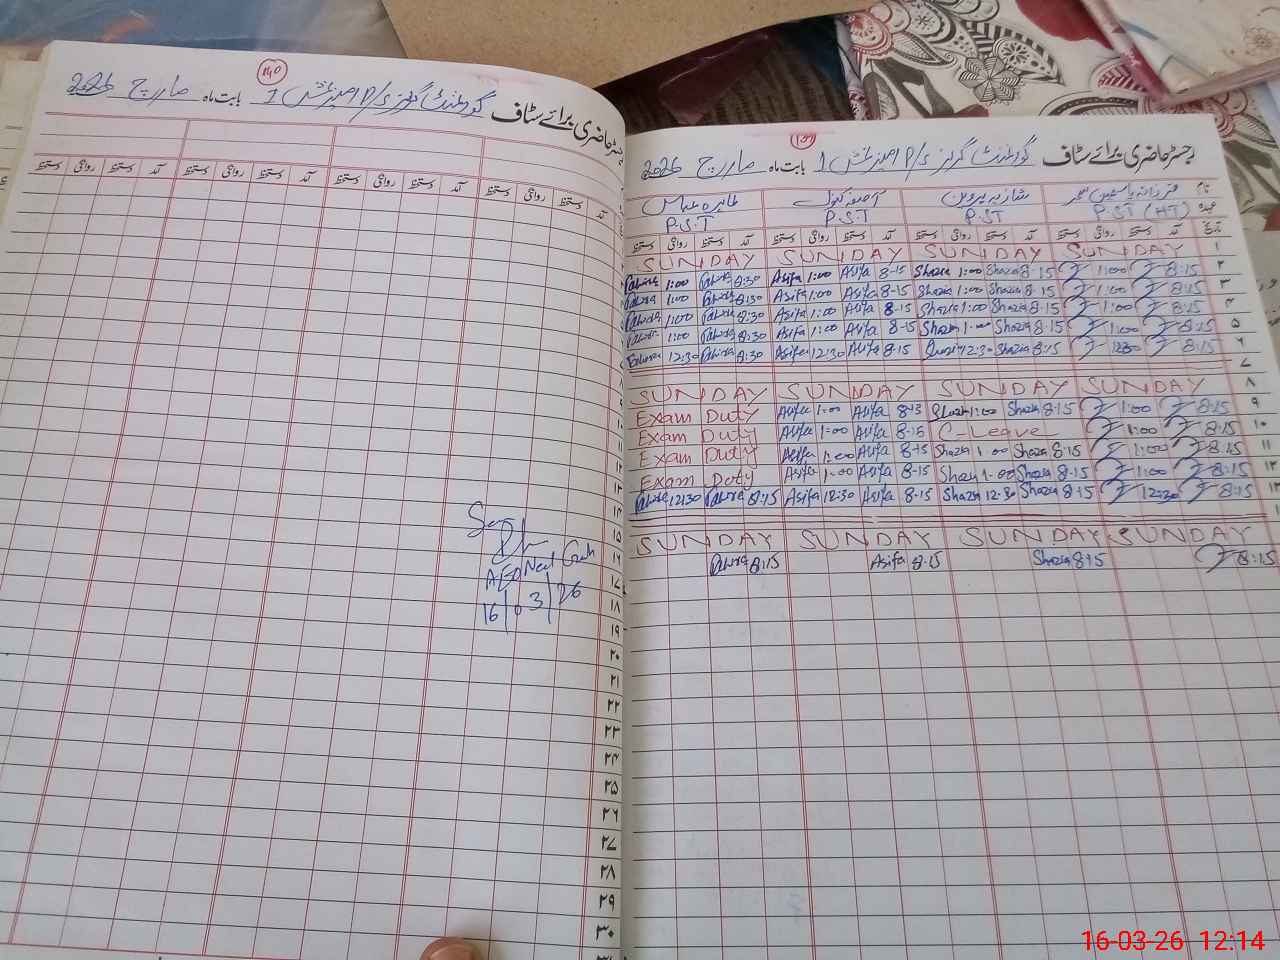 ۱۴۰
رجسٹر حاضری برائے سٹاف گورنمنٹ گرلز P/S 1 بابت ماہ مارچ 2026
آمد دستخط روانگی دستخط آمد دستخط روانگی دستخط آمد دستخط روانگی دستخط آمد دستخط روانگی دستخط
۸
۹
۱۰
۱۱
۱۲
۱۳
۱۴
۱۵
۱۶
۱۷
۱۸
۱۹
۲۰
۲۱
۲۲
۲۳
۲۴
۲۵
۲۶
۲۷
۲۸
۲۹
۳۰
AEO
16/03/26
۱۳۹
رجسٹر حاضری برائے سٹاف گورنمنٹ گرلز P/S 1 بابت ماہ مارچ 2026
نام فرزانہ یاسمین شازیہ پروین آصفہ کنول طاہرہ عباس
عہدہ P.S.T (HT) P.S.T P.S.T P.S.T
تاریخ آمد دستخط روانگی دستخط آمد دستخط روانگی دستخط آمد دستخط روانگی دستخط آمد دستخط روانگی دستخط
SUNDAY SUNDAY SUNDAY SUNDAY ۱
Tahira 1:00 Tahira 8:30 Asifa 1:00 Asifa 8-15 Shazia 1:00 Shazia 8-15 1:00 8:15 ۲
Tahira 1:00 Tahira 8:30 Asifa 1:00 Asifa 8-15 Shazia 1:00 Shazia 8-15 1:00 8:15 ۳
Tahira 1:00 Tahira 8:30 Asifa 1:00 Asifa 8-15 Shazia 1:00 Shazia 8-15 1:00 8:15 ۴
Tahira 1:00 Tahira 8:30 Asifa 1:00 Asifa 8-15 Shazia 1:00 Shazia 8-15 1:00 8:15 ۵
Tahira 12:30 Tahira 8:30 Asifa 12:30 Asifa 8-15 Shazia 12:30 Shazia 8:15 12:30 8:15 ۶
۷
SUNDAY SUNDAY SUNDAY SUNDAY ۸
Exam Duty Asifa 1:00 Asifa 8-15 Shazia 1:00 Shazia 8-15 1:00 8:15 ۹
Exam Duty Asifa 1:00 Asifa 8-15 C-Leave 1:00 8:15 ۱۰
Exam Duty Asifa 1:00 Asifa 8-15 Shazia 1:00 Shazia 8-15 1:00 8:15 ۱۱
Exam Duty Asifa 1:00 Asifa 8-15 Shazia 1:00 Shazia 8-15 1:00 8:15 ۱۲
Tahira 12:30 Tahira 8:15 Asifa 12:30 Asifa 8-15 Shazia 12:30 Shazia 8:15 12:30 8:15 ۱۳
SUNDAY SUNDAY SUNDAY SUNDAY
Tahira 8:15 Asifa 8-15 Shazia 8:15 8:15
16-03-26 12:14